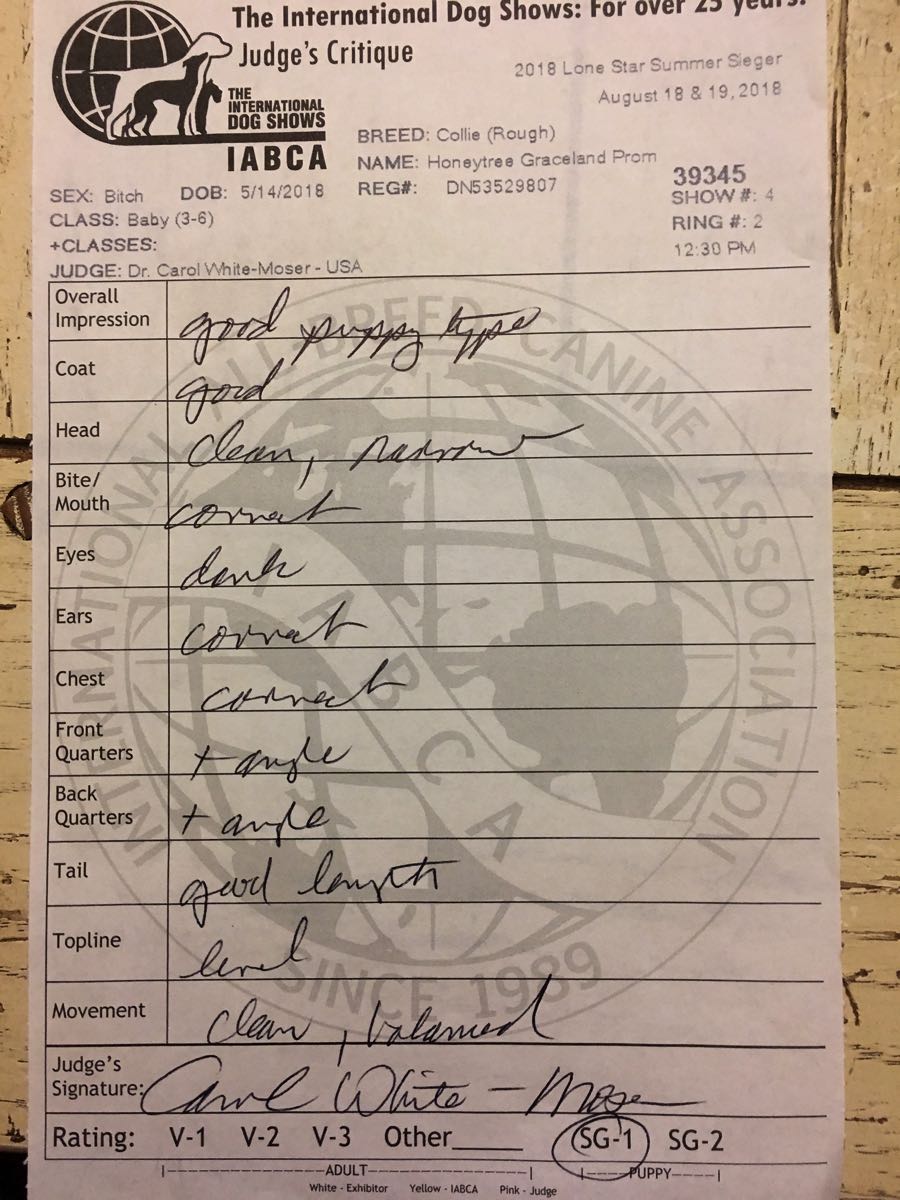 The International Dog Shows: For over 25 years.
Judge's Critique
THE
INTERNATIONAL
DOG SHOWS
IABCA
2018 Lone Star Summer Sieger
August 18 & 19, 2018
BREED: Collie (Rough)
NAME: Honeytree Graceland Prom
39345
SEX: Bitch DOB: 5/14/2018 REG#: DN53529807 SHOW #: 4
CLASS: Baby (3-6) RING #: 2
+CLASSES: 12:30 PM
JUDGE: Dr. Carol White-Moser - USA
Overall Impression good puppy type
Coat good
Head clean, narrow
Bite/ Mouth correct
Eyes dark
Ears correct
Chest correct
Front Quarters + angle
Back Quarters + angle
Tail good length
Topline level
Movement clean, balanced
Judge's Signature: Carol White-Moser
Rating: V-1 V-2 V-3 Other____ SG-1 SG-2
ADULT PUPPY
White - Exhibitor Yellow - IABCA Pink - Judge
INTERNATIONAL ALL BREED CANINE ASSOCIATION
IABCA
SINCE 1989